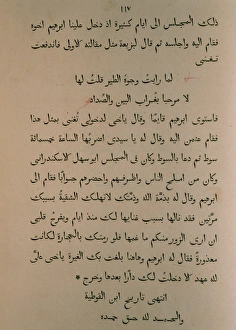 ١١٧
ذلك المجلس الى ايام كثيرة اذ دخل علينا ابرهيم اخوه
فقام اليه واجلسه ثم قال لبزيعة مثل مقالته الاولى فاندفعت
تغنى
لما رايت وجوه الطير قلت لها
لا مرحبا بغراب البين والصداد
فاستوى ابرهيم قايمًا وقال ياخى لدخولى تغنى بمثل هذا
فقام اليه وقال له يا سيدى اضربها الساعة خمسمائة
سوط ثم دعا بالسوط وكان فى المجلس ابوسهل الاسكندرانى
وكان من اصلح الناس واظرفهم واحضرهم جوابًا فقام الى
ابرهيم وقال له بذمة الله وذمتك لاتهلك الشقية بسببك
مرتين فقد نالها بسبب غنايها لك منذ ايام ويفرح قلبى
ان ارى الزور منكم ما غنها فلو رمتك بالحجارة لكانت
معذورة فقام له ابرهيم وقال هاهنا بلغت بك الغيرة ياخى علىّ
لله عهد لا دخلت لك دارًا بعدها وخرج *
انتهى تاريخ ابن القوطية
والحمد لله حق حمده